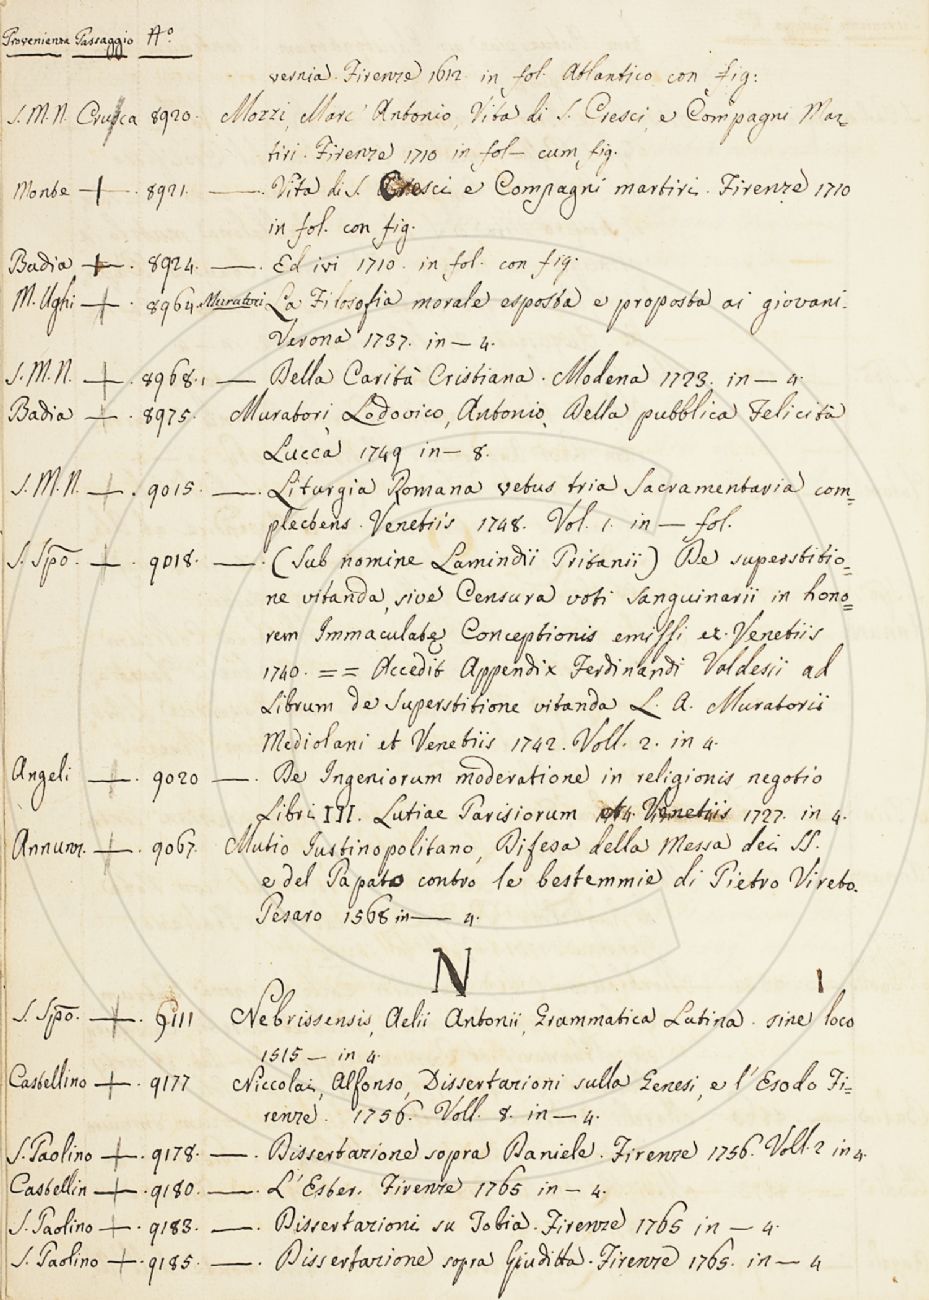 Provenienza Passaggio A.º
vernia. Firenze 1612. in fol. Atlantico con fig:
S. M. N. Crusca 8920. Mozzi, Marc' Antonio, Vita di S. Cresci, e Compagni Mar=
tiri. Firenze 1710 in fol— cum fig.
Monte + . 8921. — . Vita di S. Cresci e Compagni martiri. Firenze 1710
in fol. con fig.
Badia + . 8924. — . Ed ivi 1710. in fol. con fig.
M. Ughi + . 8964. Muratori La Filosofia morale esposta e proposta ai giovani.
Verona 1737. in — 4.
S. M. N. + . 8968. — Della Carità Cristiana. Modena 1723. in — 4
Badia + . 8975. Muratori, Lodovico, Antonio, Della pubblica Felicità
Lucca 1749 in— 8.
S. M. N. + . 9015. — . Liturgia Romana vetus tria Sacramentaria com=
plectens. Venetiis 1748. Vol. 1. in — fol.
S. Spō. + . 9018. — . (Sub nomine Lamindii Pritanii) De superstitio=
ne vitanda, sive Censura voti sanguinarii in hono=
rem Immaculatę Conceptionis emissi &c. Venetiis
1740. == Accedit Appendix Ferdinandi Valdesii ad
Librum de Superstitione vitanda L. A. Muratorii
Mediolani et Venetiis 1742. Voll. 2. in 4.
Angeli + . 9020 — . De Ingeniorum moderatione in religionis negotio
Libri III. Lutiae Parisiorum et Venetiis 1727. in 4.
Annunz. + . 9067. Mutio Iustinopolitano, Difesa della Messa dei SS.
e del Papato contro le bestemmie di Pietro Vireto.
Pesaro 1568 in — 4.
N
S. Spō. + . 9111 Nebrissensis, Aelii Antonii, Grammatica Latina. sine loco
1515 — in 4.
Castellino + . 9177 Niccolai, Alfonso, Dissertazioni sulla Genesi, e l'Esodo Fi=
renze. 1756. Voll. 8. in — 4.
S. Paolino + . 9178. — . Dissertazione sopra Daniele. Firenze 1756. Voll. 2 in 4.
Castellin + . 9180. — . L'Ester. Firenze 1765 in — 4.
S. Paolino + . 9183. — . Dissertazioni su Tobia. Firenze 1765 in — 4.
S. Paolino + . 9185. — . Dissertazione sopra Giuditta. Firenze 1765. in — 4